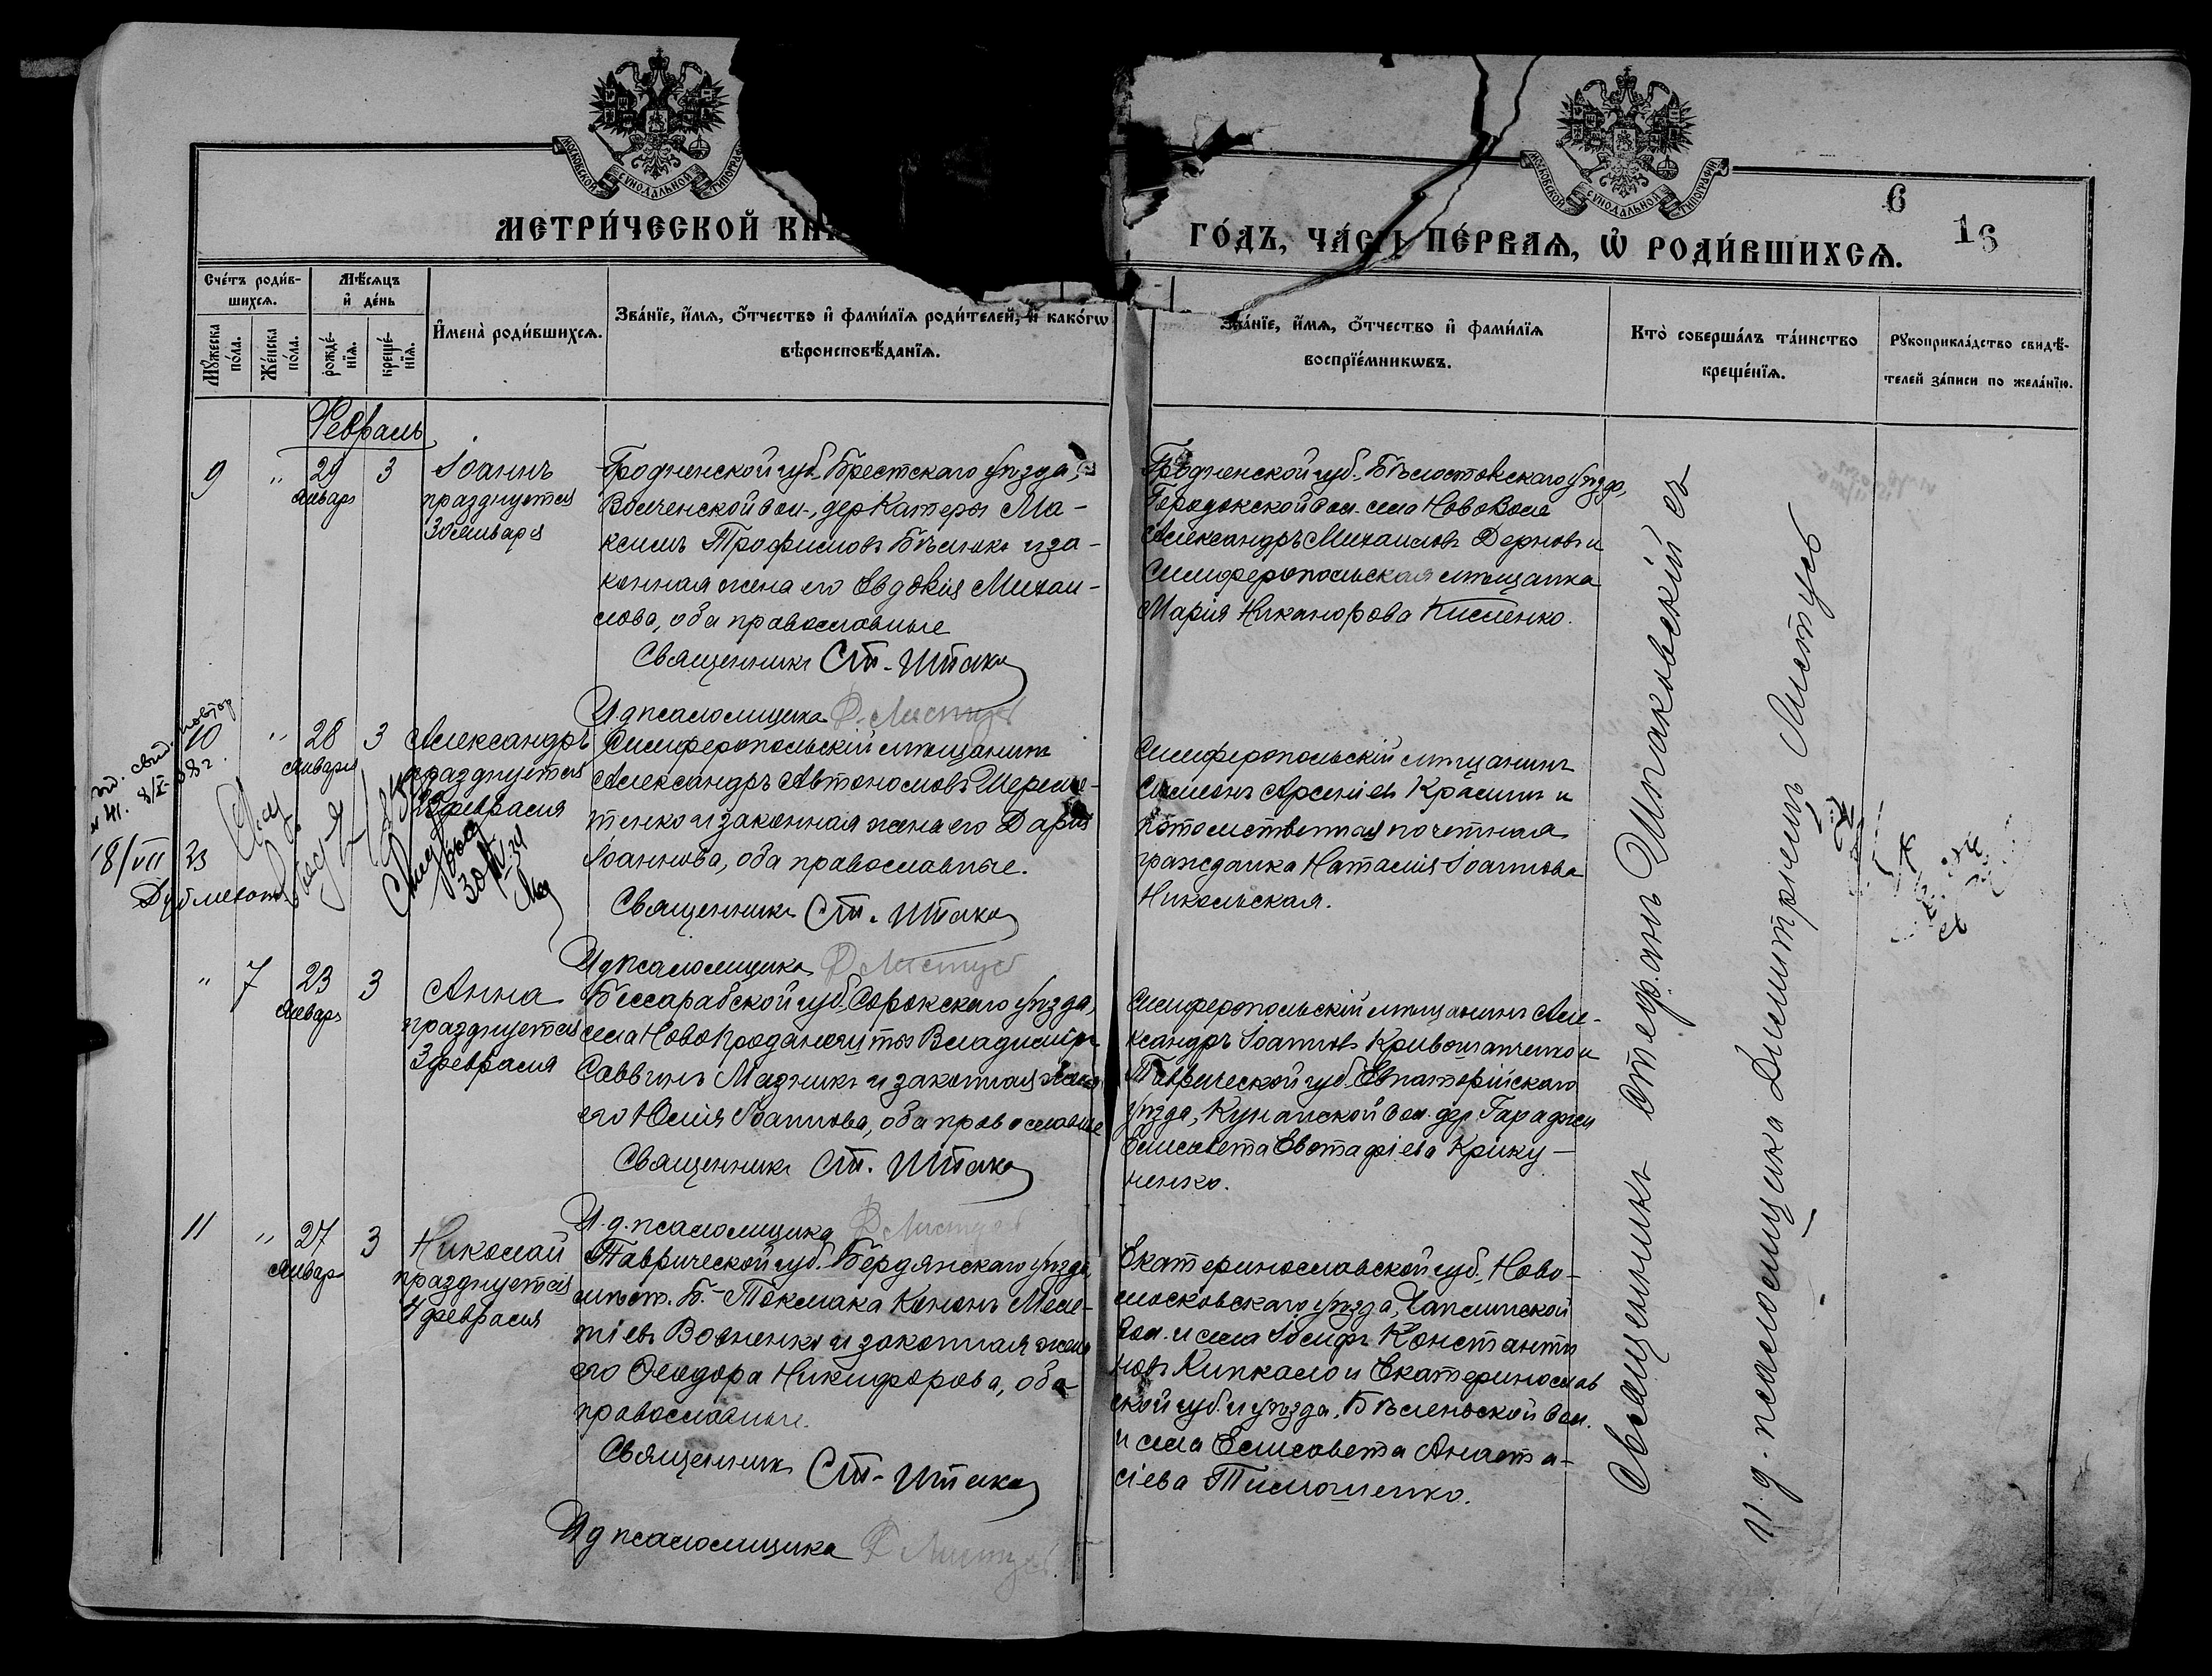 МОСКОВСКОЙ СѴНОДАЛЬНОЙ ТИПОГРАФ
МОСКОВСКОЙ СѴНОДАЛЬНОЙ ТИПОГРАФИ
6
16
МЕТРИ́ЧЕСКОЙ КН
ГО́ДЪ, ЧА́СТЬ ПЕ́РВАѦ, Ѡ҆ РОДИ́ВШИХСѦ.
Сче́тъ роди́в-
шихсѧ.
Мѣ́сѧцъ
и҆ де́нь
Мꙋ́жеска
по́ла.
Же́нска
по́ла.
рожде́-
нїѧ.
креще́-
нїѧ.
И҆мена̀ роди́вшихсѧ.
Зва́нїе, и҆́мѧ, ѻ҆́тчество и҆ фами́лїѧ роди́телей, и҆ како́гѡ
вѣроисповѣ́данїѧ.
Зва́нїе, и҆́мѧ, ѻ҆́тчество и҆ фами́лїѧ
воспрїе́мникѡвъ.
Кто̀ соверша́лъ та́инство
креще́нїѧ.
Рꙋкоприкла́дство свидѣ́-
телей за́писи по жела́нїю.
Февраль
9 " 29 3
Январь
Іоаннъ
празднуется
30 января
Гродненской губ. Брестскаго уѣзда,
Волченской вол., дер Катеры Ма-
ксимъ Трофимовъ Бѣлюкъ и за-
конная жена его Евдокія Михаи-
лова, оба православные
Священникъ Ст. Шпако
И.д псаломщика Д. Листусъ
Гродненской губ. Бѣлостокскаго уѣзда,
Городокской вол. села НовоВоля
Александръ Михаиловъ Дерновъ и
Симферопольская мѣщанка
Марія Никанорова Кисленко.
10 " 28 3
Января
Александръ
празднуется
23 февраля
Симферопольскій мѣщанинъ
Александръ Автономовъ Шереме-
тенко и законная жена его Дарія
Іоаннова, оба православные.
Священникъ Ст. Шпако
И д псаломщика Д Листусъ
Симферопольскій мѣщанинъ
Симеонъ Арсеніевъ Красинъ и
потомственная почетная
гражданка Наталія Іоаннова
Никольская.
повтор
8/X-38г.
18/VII 23
Дубликатъ
30
" 7 23 3
Январь
Анна
празднуется
3 февраля
Бессарабской губ. Сорокскаго уѣзда,
Владиміръ
Саввинъ Мазникъ и законная жена
его Юлія Іоаннова, оба православные
Священникъ Ст. Шпако
И.д. псаломщика Д Листусъ
Симферопольскій мѣщанинъ Але-
ксандръ Іоанновъ Кривошапченко и
Таврической губ. Евпаторійскаго
уѣзда, Кунанской вол. дер Гараджи
Елисавета Евстафіева Крику-
ненко.
11 " 27 3
Январь
Николай
празднуется
4 февраля
Таврической губ. Бердянскаго уѣзда
мѣст. Б.-Токмака Кононъ Меле-
тіевъ Вовненко и законная жена
его Ѳеодора Никифорова, оба
православные.
Священникъ Ст. Шпако
И д псаломщика Д Листусъ
Екатеринославской губ. Ново-
московскаго уѣзда, Чаплинской
вол. и села Іосифъ Константи
новъ Кипкало и Екатеринослав
ской губ. и уѣзда, Бѣленьской вол.
и села Елисавета Анаста-
сіева Тимошенко.
Священникъ Стефанъ Шпаковскій съ
и. д. псаломщика Димитріемъ Листусъ